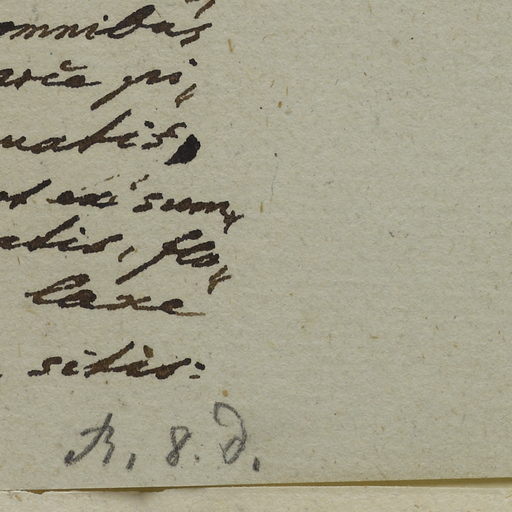 omnibus
pi,
uatis,
ot ex sum,
atis, flo,
laxe
sitis:
R. 8. d.